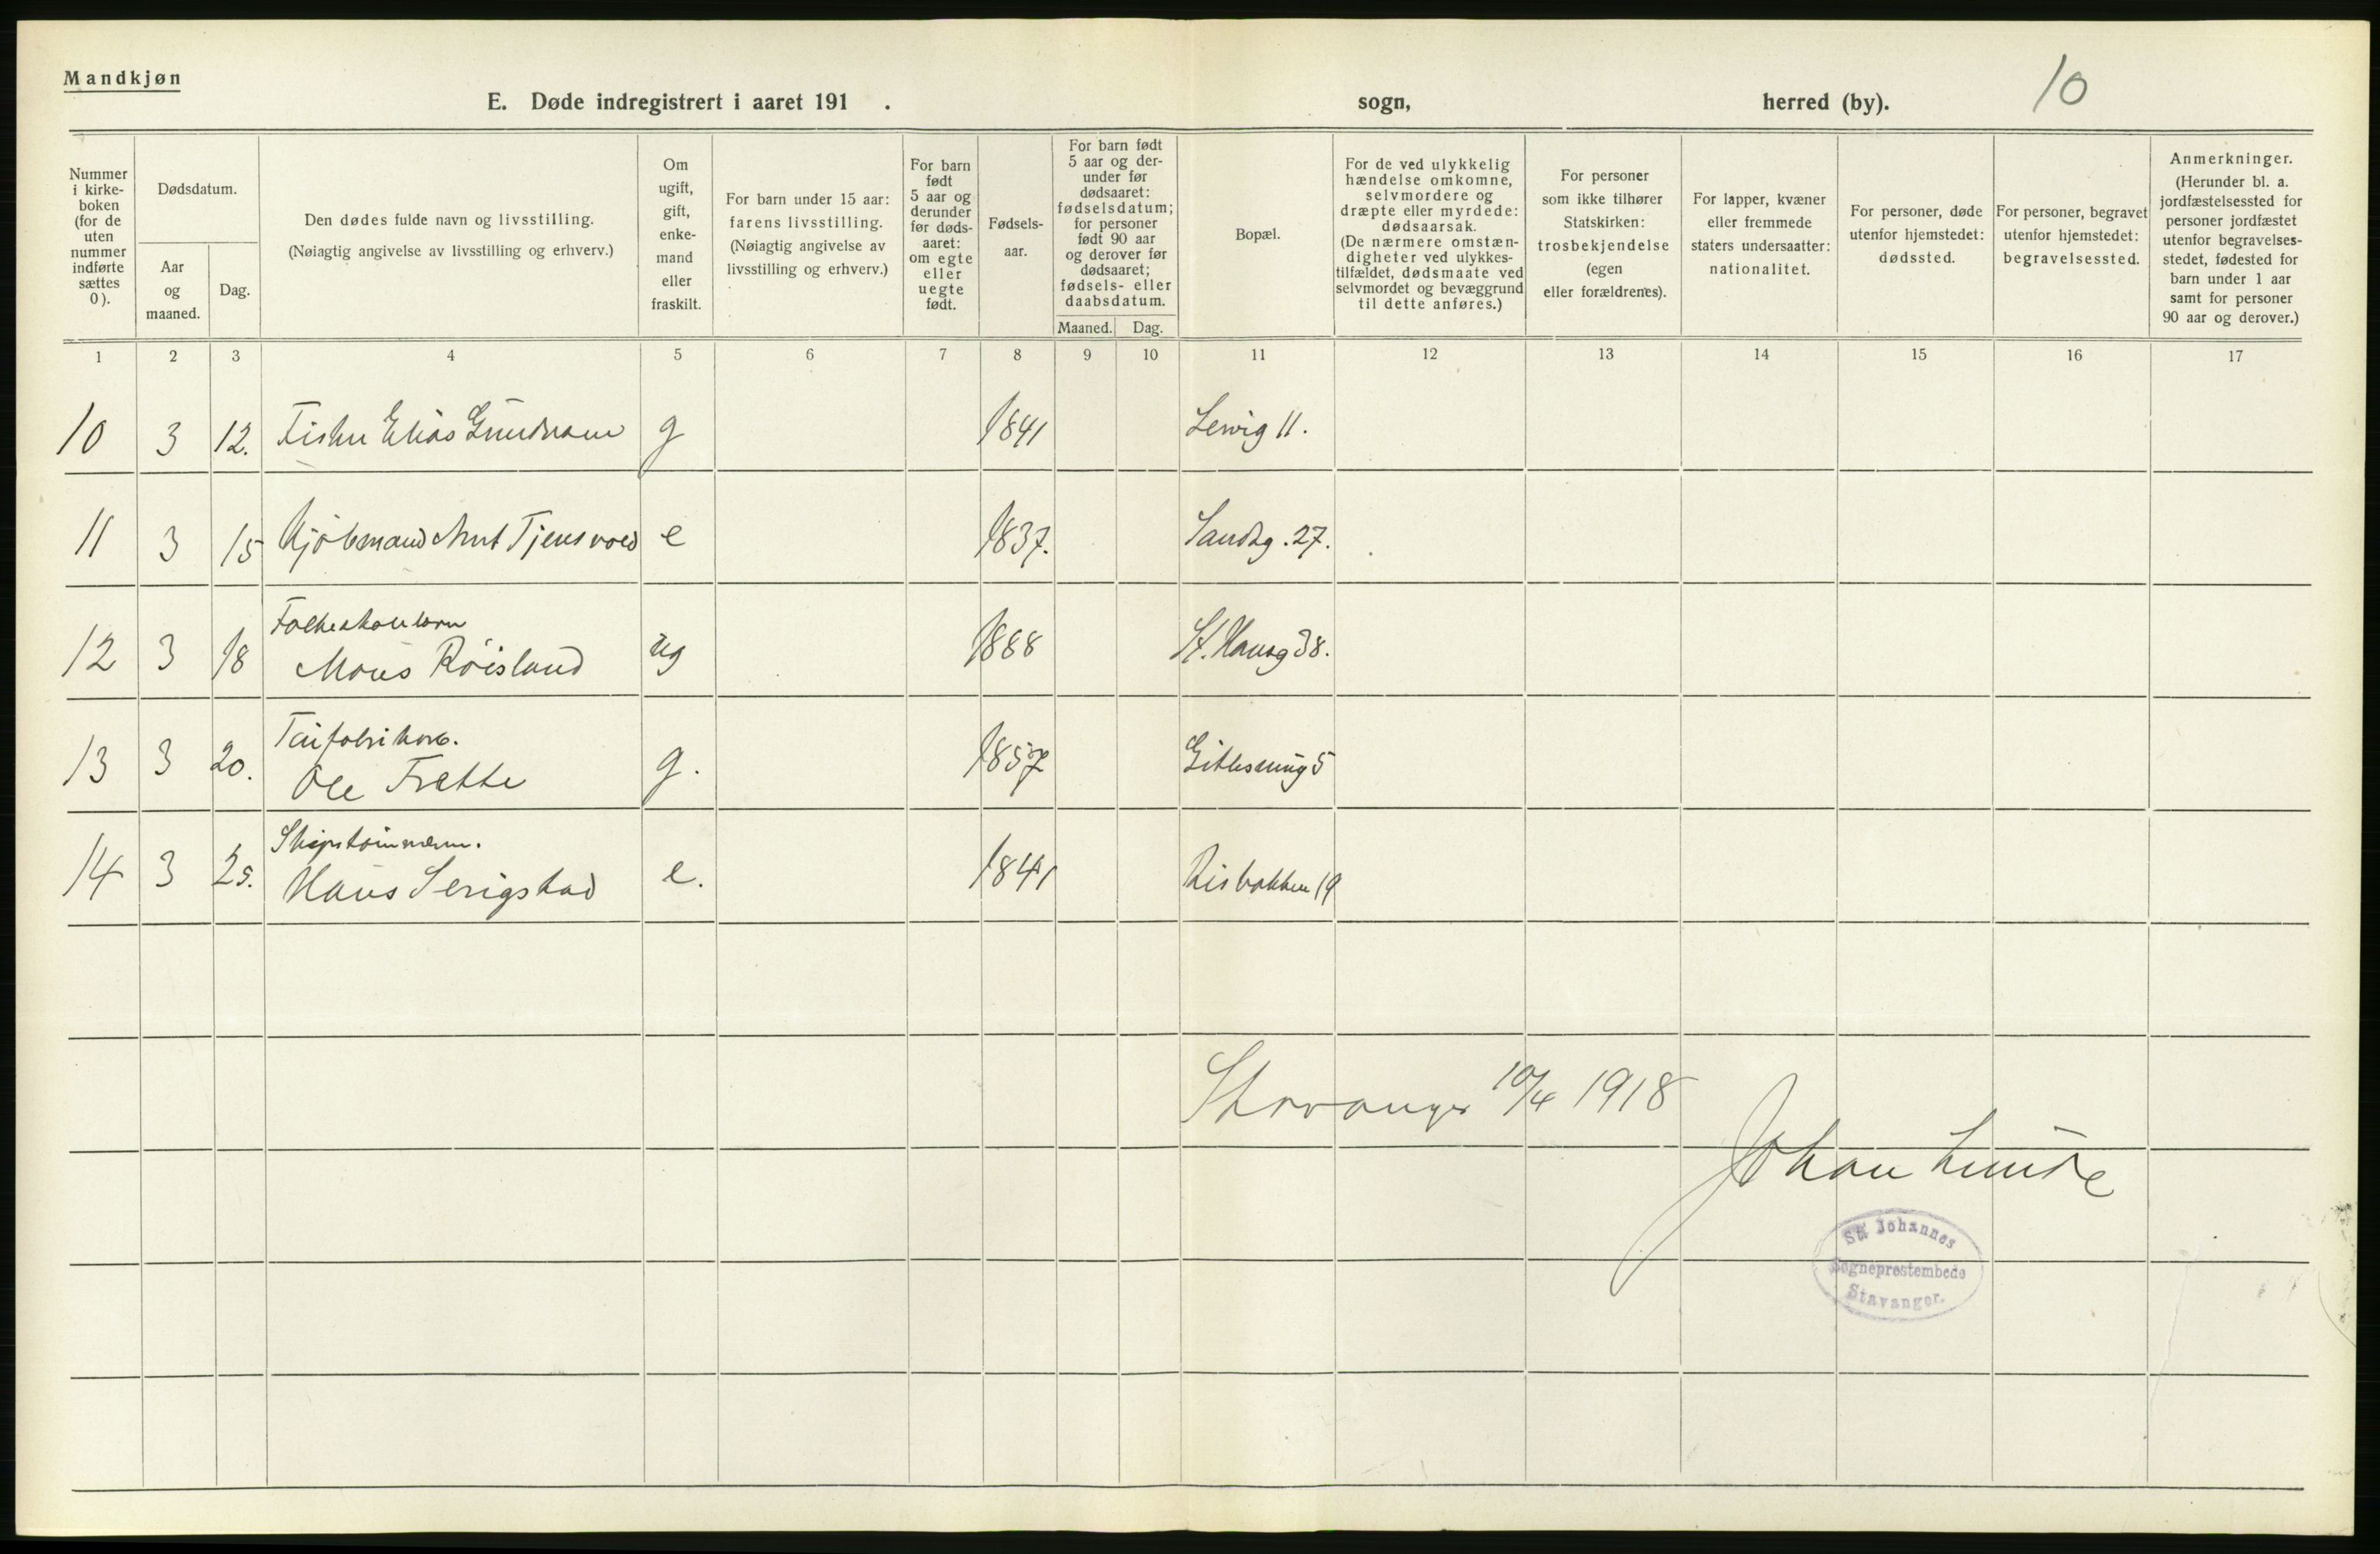 Mandkjøn
E. Døde indregistrert i aaret 191 . sogn, herred (by). 10
Nummer i kirke- boken (for de uten nummer indførte sættes 0).
Dødsdatum.
Aar og maaned.
Dag.
Den dødes fulde navn og livsstilling.
(Nøiagtig angivelse av livsstilling og erhverv.)
Om ugift, gift, enke- mand eller fraskilt.
For barn under 15 aar: farens livsstilling. (Nøiagtig angivelse av livsstilling og erhverv.)
For barn født 5 aar og derunder før døds- aaret: om egte eller uegte født.
Fødsels- aar.
For barn født 5 aar og der- under før dødsaaret: fødselsdatum; for personer født 90 aar og derover før dødsaaret; fødsels- eller daabsdatum.
Maaned. Dag.
Bopæl.
For de ved ulykkelig hændelse omkomne, selvmordere og dræpte eller myrdede: dødsaarsak. (De nærmere omstæn- digheter ved ulykkes- tilfældet, dødsmaate ved selvmordet og bevæggrund til dette anføres.)
For personer som ikke tilhører Statskirken: trosbekjendelse (egen eller forældrenes).
For lapper, kvæner eller fremmede staters undersaatter: nationalitet.
For personer, døde utenfor hjemstedet: dødssted.
For personer, begravet utenfor hjemstedet: begravelsessted.
Anmerkninger. (Herunder bl. a. jordfæstelsessted for personer jordfæstet utenfor begravelses- stedet, fødested for barn under 1 aar samt for personer 90 aar og derover.)
1 2 3 4 5 6 7 8 9 10 11 12 13 14 15 16 17
10 3 12. Fisker Elias g 1841 11.
11 3 15 Kjøbmand Tjensvold e 1837. Sandsg. 27.
12 3 18
Mons Röisland ug 1888 St. Hansg 38.
13 3 20.
Ole Trætte g. 1857 5
14 3 25. Skipstømmerm.
Hans Serigstad e. 1841 Risbakken 19
Stavanger 10/4 1918
Johan Lunde
St Johannes
Sogneprestembede
Stavanger.